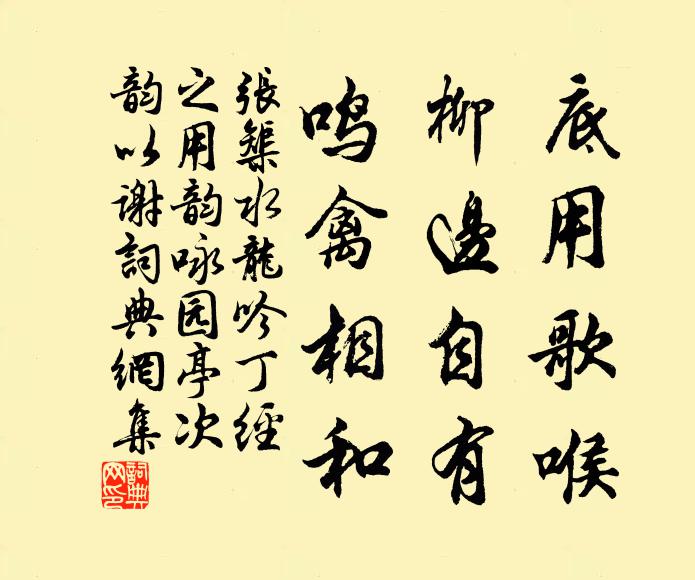 底用歌喉
柳邊自有
鳴禽相和
張榘水龍吟丁經
之用韵咏园亭次
韵以谢詞典網集
詞典網印